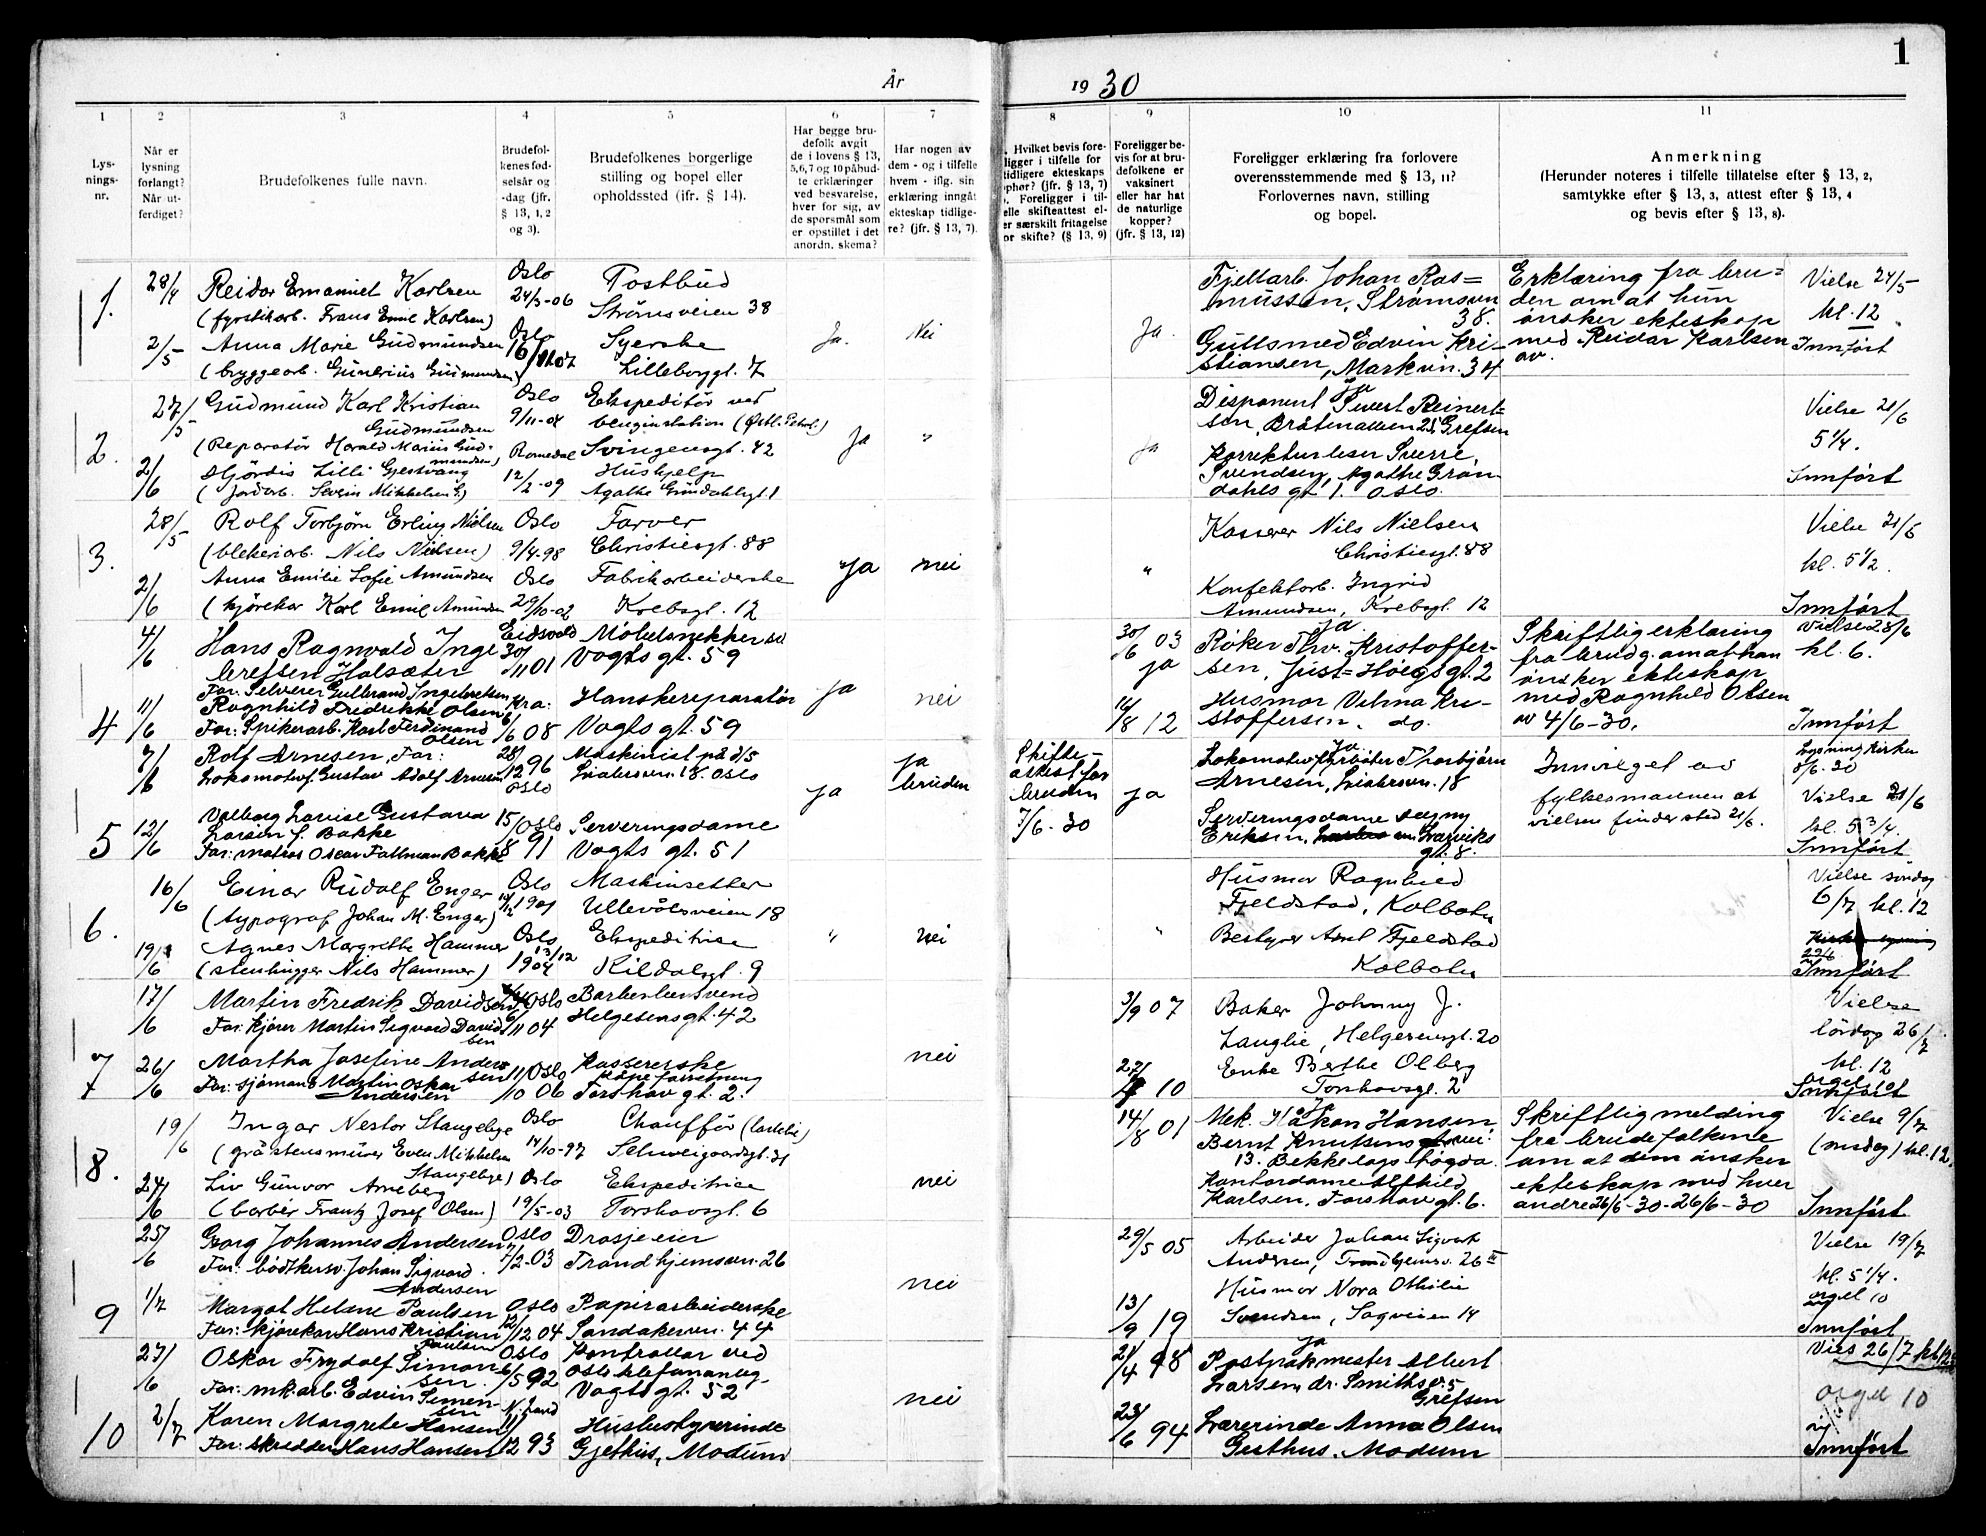 1
År 1930
1
Lys-
nings-
nr.
2
Når er
lysning
forlangt?
Når ut-
ferdiget?
3
Brudefolkenes fulle navn.
4
Brudefol-
kenes fød-
selsår og
-dag (jfr.
§ 13, 1, 2
og 3).
5
Brudefolkenes borgerlige
stilling og bopel eller
opholdssted (ifr. § 14).
6
Har begge bru-
defolk avgit
de i lovens § 13,
5,6,7 og 10 påbud-
te erklæringer
ved besvarelse,
hver for sig, av
de spørsmål som
er opstillet i det
anordn. skema?
7
Har nogen av
dem - og i tilfelle
hvem - iflg. sin
erklæring inngåt
ekteskap tidlige-
re? (jfr. § 13, 7).
8
Hvilket bevis fore-
ligger i tilfelle for
tidligere ekteskaps
ophør? (jfr. § 13, 7)
Foreligger i til-
elle skifteattest el-
er særskilt fritagelse
or skifte? (§ 13, 9)
9
Foreligger be-
vis for at bru-
defolkene er
vaksinert
eller har hat
de naturlige
kopper?
(jfr. § 13, 12)
10
Foreligger erklæring fra forlovere
overensstemmende med § 13, 11?
Forlovernes navn, stilling
og bopel.
11
Anmerkning
(Herunder noteres i tilfelle tillatelse efter § 13, 2,
samtykke efter § 13, 3, attest efter § 13, 4
og bevis efter § 13, 8).
1. 28/4 Reidar Emanuel Karlsen Oslo 24/3-06 Postbud
(fyrstikarb. Frans Emil Karlsen) Strømsveien 38
2/5 Anna Marie Gudmundsen Oslo 16/11 07 Syerske Ja. Nei
(bryggearb. Gunerius Gudmundsen) Lilleborggt. 7
Ja. Fjellarb. Johan Ras=
mussen, Strømsvn
38.
Gullsmed Edvin Kri-
stiansen, Markvn. 34
Erklæring fra bru=
den om at hun
ønsker ekteskap
med Reidar Karlsen
av.
Vielse 24/5
kl. 12
Innført
2. 27/5 Gudmund Karl Kristian Oslo Ekspeditør ved
Gudmundsen 9/11-04 benzinstation (Østl. Petrol.)
(Reparatør Harald Marius Gud-
mundsen) Romedal Svingensgt. 42 Ja "
2/6 Hjördis Lilli Gjestvang 12/2-09 Hushjelp
(Jordarb. Severin Mikkelsen G.) Agathe Grundahlsgt. 1
ja Ja
Disponent Sivert Reinert-
sen, Bråtenalleen 25, Grefsen
Korrekturleser Sverre
Svendsen, Agathe Grøn-
dahls gt 1. Oslo.
Vielse 21/6
5 1/4.
Innført
3. 28/5 Rolf Torbjørn Erling Nielsen Oslo Farver
(blekeriarb. Nils Nielsen) 9/4-98 Christiesgt. 88
2/6 Anna Emilie Sofie Amundsen Oslo Fabrikarbeiderske Ja nei
(kjørekar Karl Emil Amundsen 29/10-02 Krebsgt. 12
" Kasserer Nils Nielsen
Christiesgt. 88
Konfektarb. Ingrid
Amundsen, Krebsgt. 12
Vielse 21/6
kl. 5 1/2.
Innført
4 4/6 Hans Ragnvald Inge Eidsvold Møbelsnekkersv
brefsen Holsæter 30/11 01 Vogts gt. 59
Far: Selveier Gulbrand Ingebretsen
11/6 Ragnhild Fredrikke Olsen Kra: Hanskereparatør ja nei
Far: Spikerarb. Karl Ferdinand 6/6 08 Vogts gt. 59
Olsen
30/6 03 ja
16/8 12
ja
Røker Thv. Kristoffer-
sen, Just=Höegs gt. 2
Husmor Valma Kri-
stoffersen. do.
Skriftlig erklæring
fra brudg. om at han
ønsker ekteskap
med Ragnhild Olsen
av 4/6-30.
Vielse 28/6
kl. 6.
Innført
5 7/6 Rolf Arnesen, Far: 28/12 96 Maskinist på d/s
Lokomotivf. Gustav Adolf Arnesen Oslo Oslo
12/6 Valborg Lovise Gustava 15/8 91 Oslo Serveringsdame ja ja
Larsen f. Bakke Vogts gt. 51 bruden
Far: matros Oscar Fallman Bakke
Skifte-
attest for
bruden
7/6-30
ja Ja
Lokomotivfyrbøter Thorbjørn
Arnesen, 18
Serveringsdame Dagny
Eriksen, Larviks
gt. 8.
Innvilget av
fylkesmannen at
vielsen finder sted 21/6.
Lysning kirken
8/6.30
Vielse 21/6
kl. 5 3/4.
Innført
6. 16/6 Einar Rudolf Enger Oslo Maskinsetter
(typograf Johan M. Enger) 1901 Ullevålsveien 18
19/6 Agnes Margrethe Hammer Oslo 13/12 Ekspeditrise " nei
(stenhugger Nils Hammer) 1904 Kildalsgt. 9
" Husmor Ragnhild
Fjeldstad, Kolbotn
Bestyrer Arnt Fjeldstad
Kolbotn
Vielse søndag
6/7 kl. 12
Innført
7 17/6 Martin Fredrik Davidsen Oslo Barbersvend
Far: kjører Martin Sigvard David 6/11 04 Helgesens gt. 42
sen
26/6 Martha Josefine Ander Oslo Kassererske nei
sen
Far: sjømand Martin Oskar 11/10 06 Kåpeforretning
Andersen Torshavgt. 2.
3/9 07 Baker Johnny J.
Langlie, Helgesensgt. 20
10 Enke Berthe Olberg
Torshavsgt. 2
Vielse
lørdag 26/7
kl. 12
orgel 10
Innført
8. 19/6 Ingar Nestor Stangebye Oslo Chauffør (lastebil)
(gråstensmurer Even Mikkelsen 14/10-97 Schweigaardsgt. 31
Stangebye)
24/6 Liv Gunvor Arneberg Oslo Ekspeditrise nei
(barbér Frantz Josef Olsen) 19/5-03 Torshavsgt. 6
14/8 01 Ja
Mek. Håkon Hansen
Bernt Knutsens vei:
13. Bekkelagshøgda.
Kontordame Alfhild
Karlsen, Torshavgt. 6.
Skriftlig melding
fra brudefolkene
om at dem ønsker
ekteskap med hver
andre 26/6-30-26/6-30
Vielse 9/7
(onsdag) kl. 12
Innført
9 25/6 Georg Johannes Andersen Oslo Drosjeeier
Far: bødkersv. Johan Sigvard 7/2-03 Trondhjemsvn. 26
Andersen
1/7 Margot Helene Paulsen Oslo Papirarbeiderske nei
Far: kjørekar Hans Kristian 12/12 04 Sandakervn. 44
Paulsen
29/5 05 Arbeider Johan Sigvart
Andersen, Trondhjemsv. 26 III
Husmor Nora Othilie
13/9 19 Svendsen, Sagveien 14
Vielse 19/7
kl. 5 1/4.
orgel 10
Innført
10 27/6 Oskar Frydolf Simon Oslo Kontrollør ved
sen. 6/5 92 Oslo telefonanleg.
Far: mk.arb. Edvin Simen- Vogts gt. 52
sen
2/7 Karen Margrete Hansen Husbestyrerinde nei
Far: Skredder Hans Hansen 12 93 Gjethus, Modum
21/4 98 Ja
Postpakmester Albert
Larsen, dr. Smiths v. 5
Grefsen
23/6 94 Lærerinde Anna Olsen
Gesthus. Modum
Vies 26/7 kl.
orgel 10
Innført